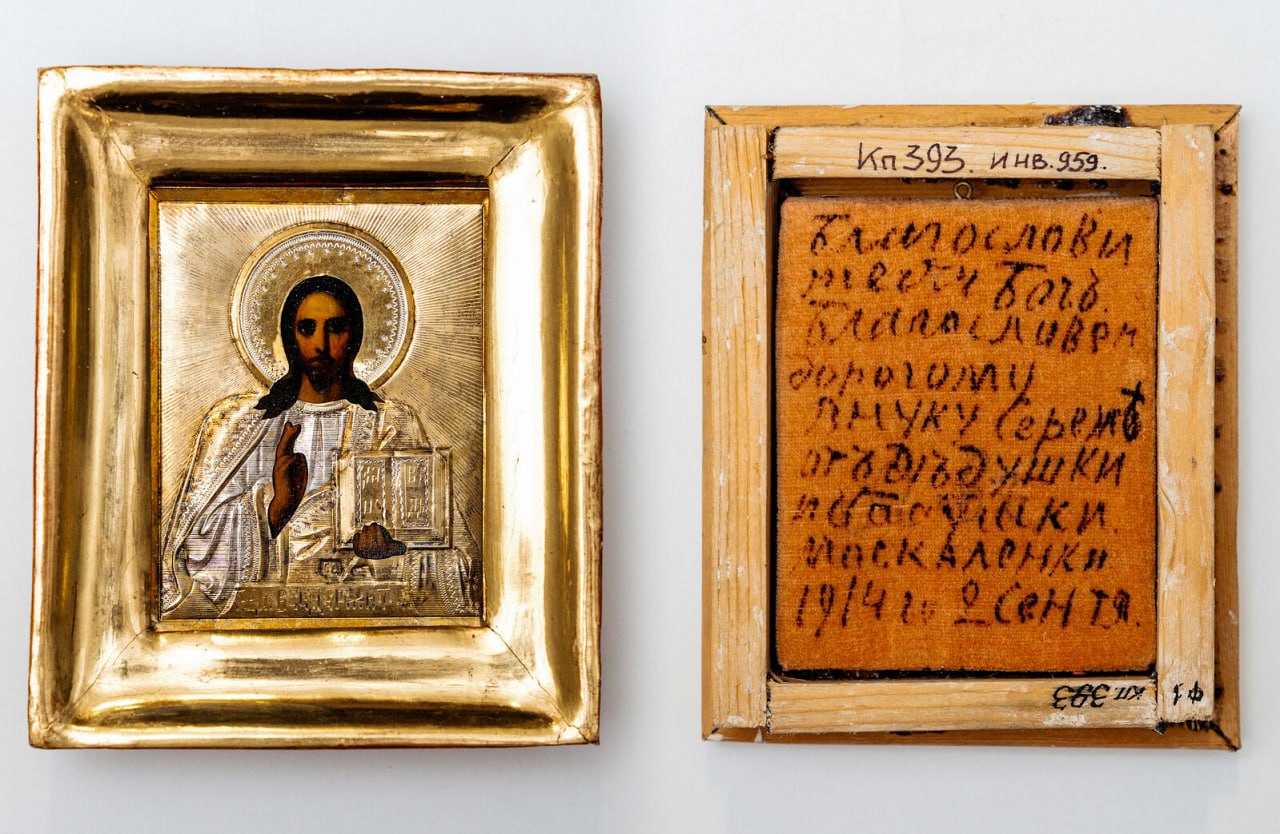 Кп 393. инв. 959.
Благослови
тебя Богъ.
Благословен
дорогому
внуку Сережѣ
отъ дѣдушки
и бабушки
Москаленки
1914 го 2 Сентя.
КП 393
ф 1